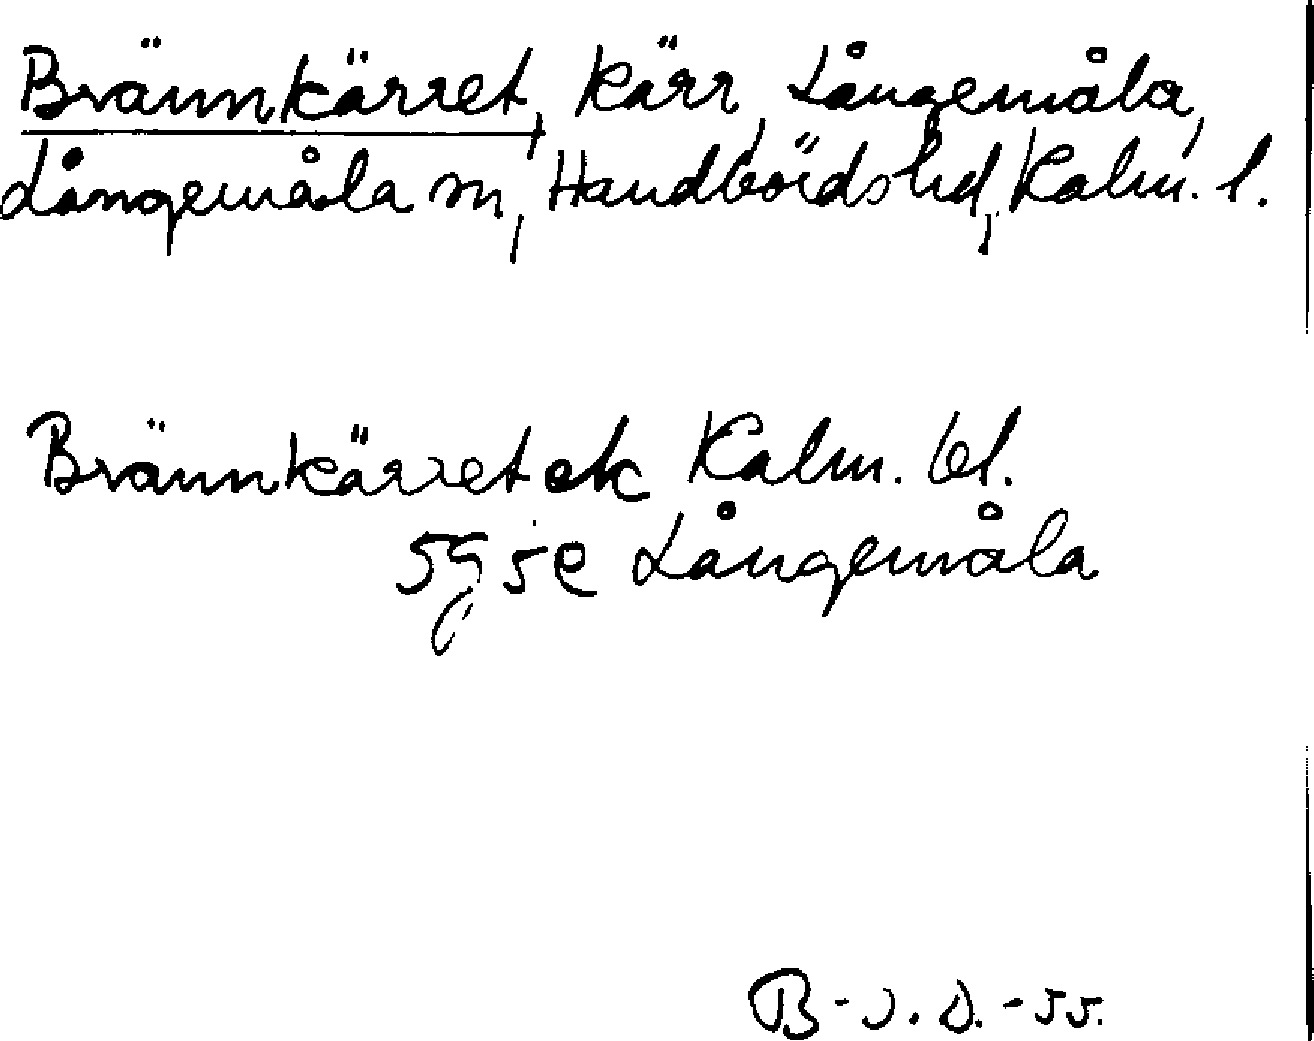 Brännkärret, kärr, Långemåla,
Långemåla sn, Handbörds hd, Kalm. l.
Brännkärret ek Kalm. bl.
5G 5e Långemåla
B-J. D. -55.